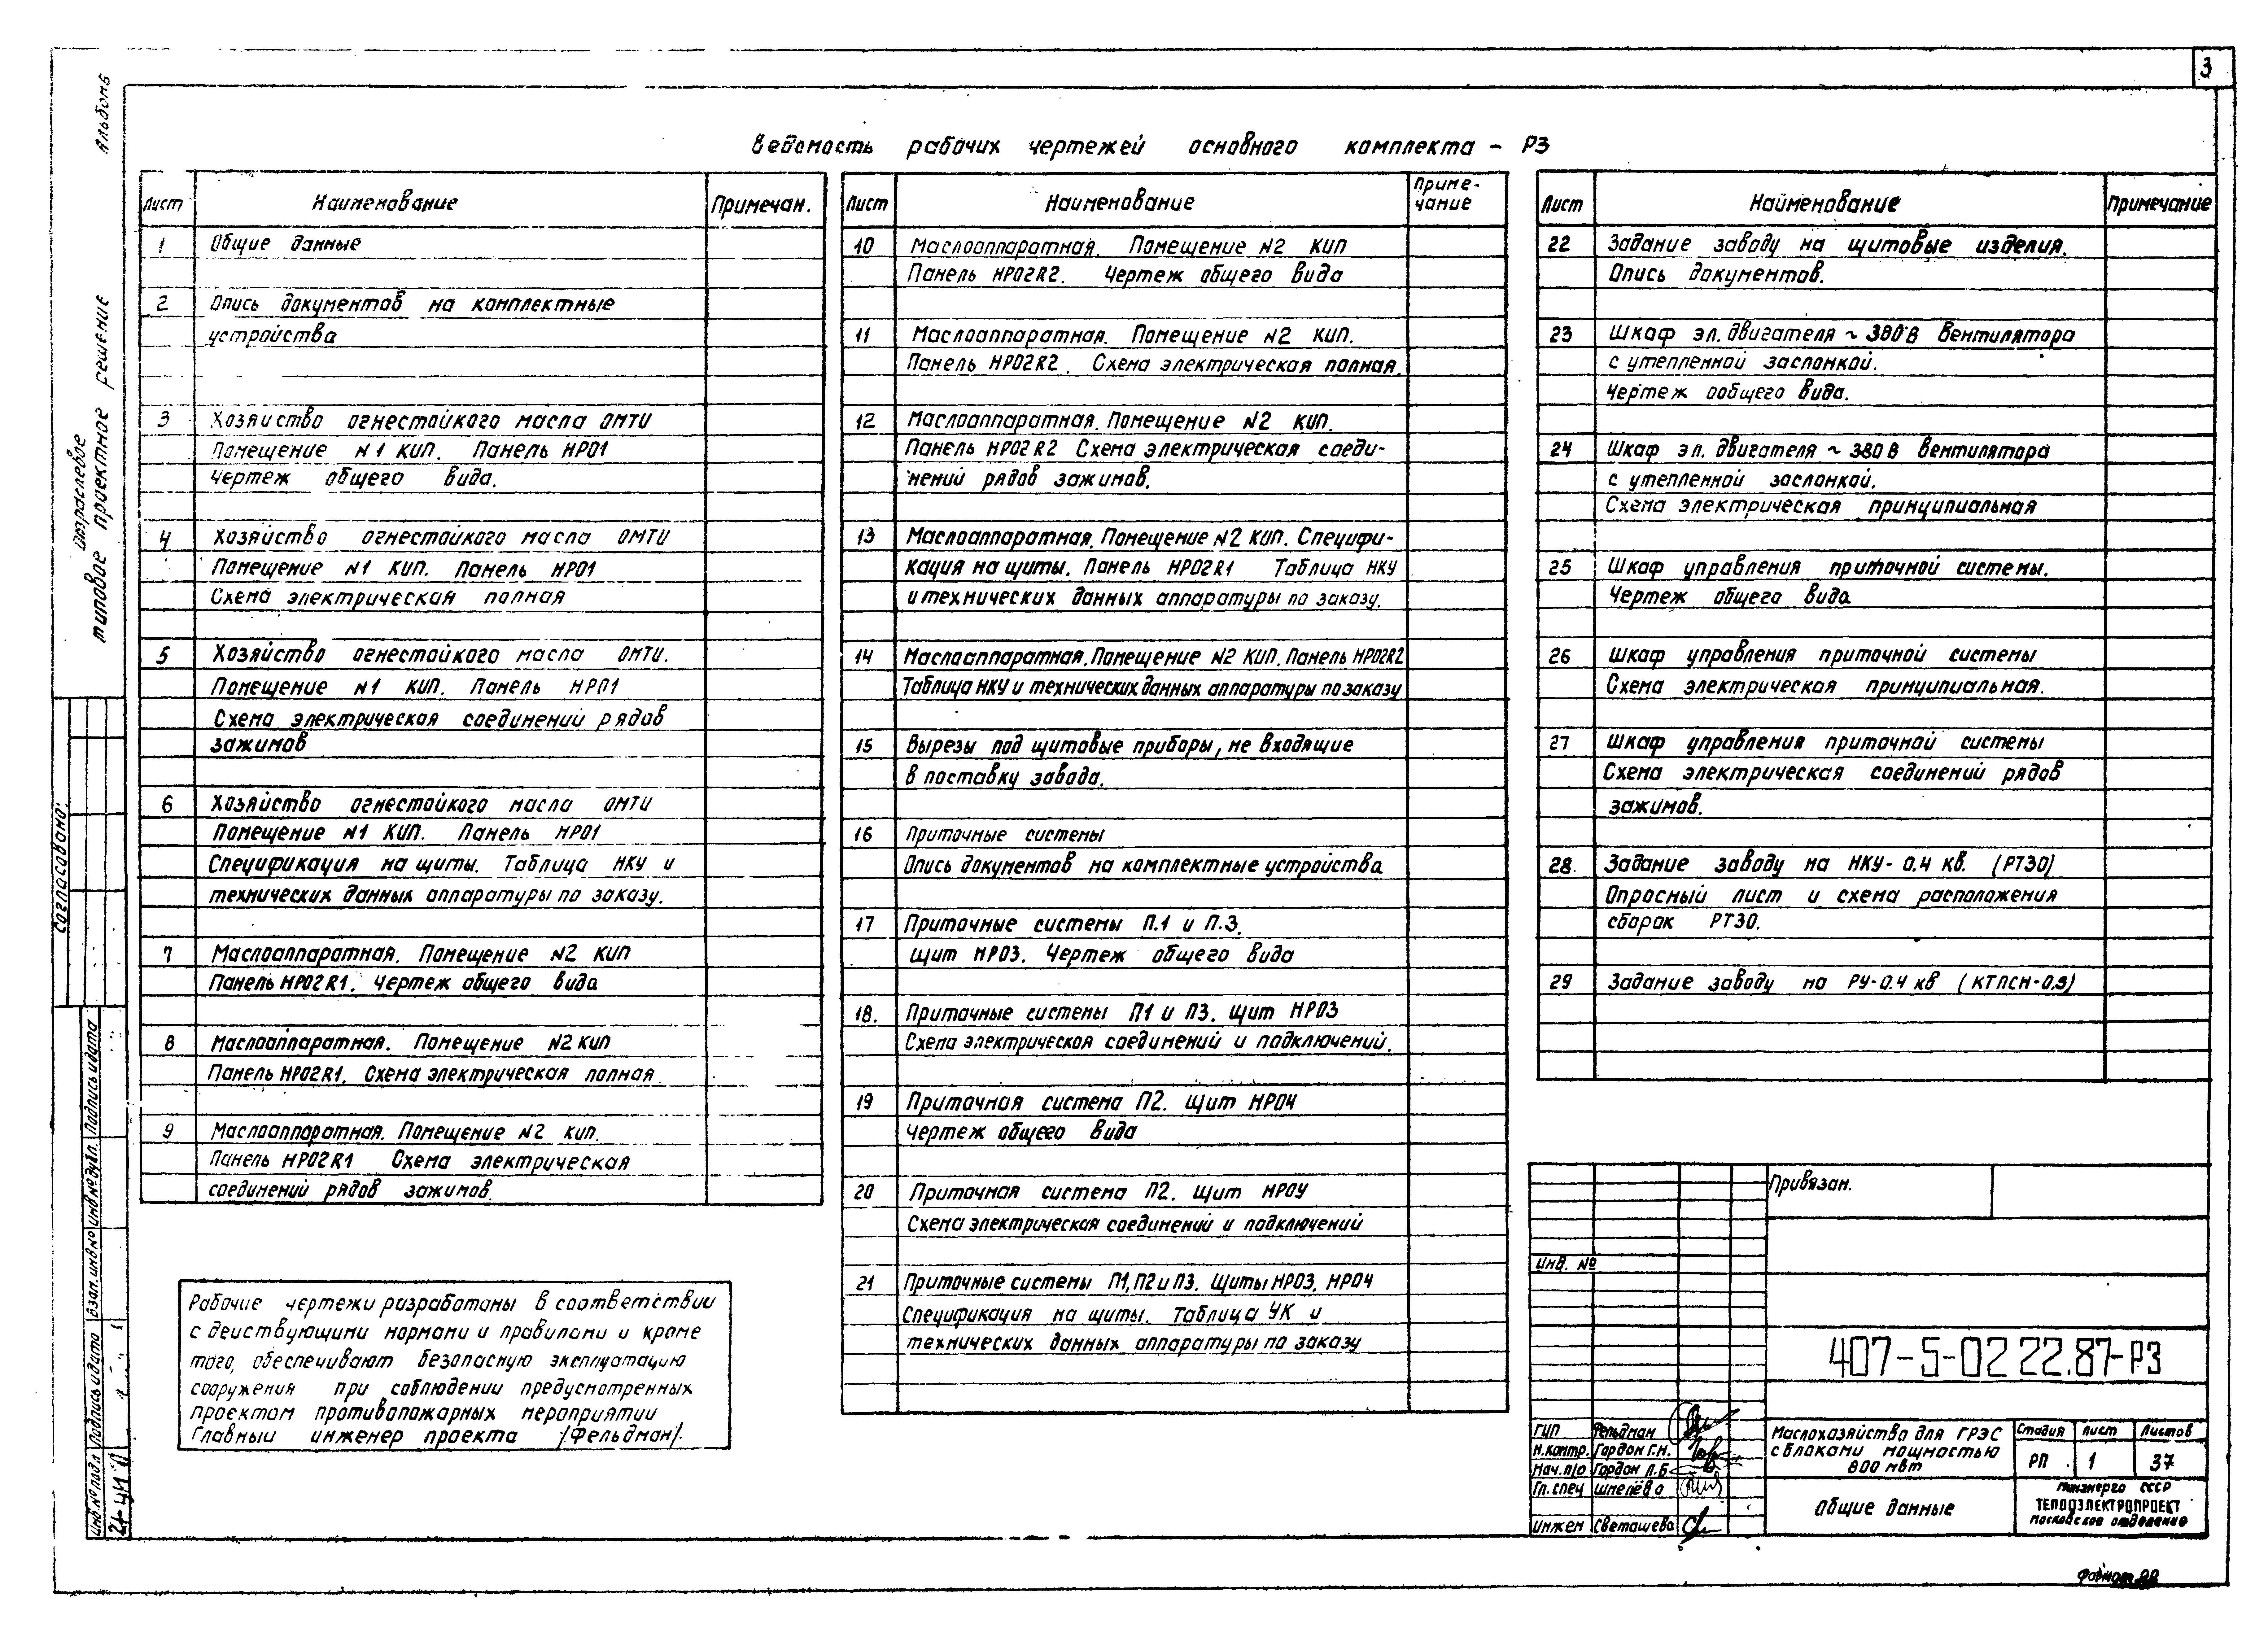 3
Альбомъ
Отраслевое
типовое проектное решение
Ведомость рабочих чертежей основного комплекта - РЗ
Лист Наименование Примечан.
1 Общие данные
2 Опись документов на комплектные
устройства
3 Хозяйство огнестойкого масла ОМТИ
Помещение №1 КИП. Панель НР01
Чертеж общего вида.
4 Хозяйство огнестойкого масла ОМТИ
Помещение №1 КИП. Панель НР01
Схема электрическая полная
5 Хозяйство огнестойкого масла ОМТИ.
Помещение №1 КИП. Панель НР01
Схема электрическая соединений рядов
зажимов
6 Хозяйство огнестойкого масла ОМТИ
Помещение №1 КИП. Панель НР01
Спецификация на щиты. Таблица НКУ и
технических данных аппаратуры по заказу.
7 Маслоаппаратная. Помещение №2 КИП
Панель НР02R1. Чертеж общего вида
8 Маслоаппаратная. Помещение №2 КИП
Панель НР02R1. Схема электрическая полная
9 Маслоаппаратная. Помещение №2 КИП.
Панель НР02R1 Схема электрическая
соединений рядов зажимов.
Лист Наименование Приме-
чание
10 Маслоаппаратная. Помещение №2 КИП
Панель НР02R2. Чертеж общего вида
11 Маслоаппаратная. Помещение №2 КИП.
Панель НР02R2. Схема электрическая полная.
12 Маслоаппаратная. Помещение №2 КИП.
Панель НР02R2 Схема электрическая соеди-
нений рядов зажимов.
13 Маслоаппаратная. Помещение №2 КИП. Специфи-
кация на щиты. Панель НР02R1 Таблица НКУ
и технических данных аппаратуры по заказу.
14 Маслоаппаратная. Помещение №2 КИП. Панель НР02R2
Таблица НКУ и технических данных аппаратуры по заказу
15 Вырезы под щитовые приборы, не входящие
в поставку завода.
16 Приточные системы
Опись документов на комплектные устройства
17 Приточные системы П.1 и П.3.
Щит НР03. Чертеж общего вида
18. Приточные системы П1 и П3. Щит НР03
Схема электрическая соединений и подключений.
19 Приточная система П2. Щит НР04
Чертеж общего вида
20 Приточная система П2. Щит НР04
Схема электрическая соединений и подключений
21 Приточные системы П1, П2 и П3. Щиты НР03, НР04
Спецификация на щиты. Таблица УК и
технических данных аппаратуры по заказу
Лист Наименование Примечание
22 Задание заводу на щитовые изделия.
Опись документов.
23 Шкаф эл. двигателя ~ 380 В вентилятора
с утепленной заслонкой.
Чертеж общего вида.
24 Шкаф эл. двигателя ~ 380 В вентилятора
с утепленной заслонкой.
Схема электрическая принципиальная
25 Шкаф управления приточной системы.
Чертеж общего вида
26 Шкаф управления приточной системы
Схема электрическая принципиальная.
27 Шкаф управления приточной системы
Схема электрическая соединений рядов
зажимов.
28. Задание заводу на НКУ-0,4 кВ. (РТ30)
Опросный лист и схема расположения
сборок РТ30.
29 Задание заводу на РУ-0.4 кв (КТПСН-0,5)
Рабочие чертежи разработаны в соответствии
с действующими нормами и правилами и кроме
того, обеспечивают безопасную эксплуатацию
сооружения при соблюдении предусмотренных
проектом противопожарных мероприятии
Главный инженер проекта /Фельдман/.
Согласовано:
Инв.№подл. Подпись и дата Взам. инв.№ Инв№дубл. Подпись и дата
Привязан.
Инв. №
407-5-0222.87-РЗ
ГИП Фельдман
Н.контр. Гордон Г.Н.
Нач.п/о Гордон Л.Б
Гл.спец Шмелёва
Инжен Светашева
Маслохозяйство для ГРЭС
с блоками мощностью
800 мвт
Стадия Лист Листов
РП 1 37
Общие данные
Минэнерго СССР
ТЕПЛОЭЛЕКТРОПРОЕКТ
Московское отделение
Формат